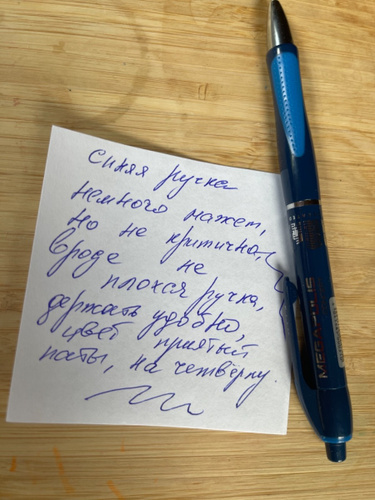 синяя ручка
немного мажет,
но не критично,
вроде не
плохая ручка,
держать удобно,
цвет приятый
пасты, на четвёрку
MEGAPOLIS